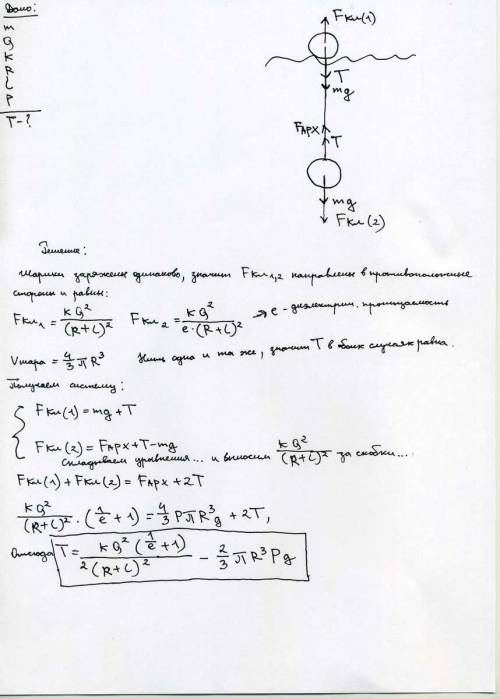 Дано:
m
Q
K
R
L
P
T-?
Fкл(1)
T
mg
FАРХ
T
mg
Fкл(2)
Решение:
Шарики заряжены одинаково, значит Fкл1,2 направлены в противоположные
стороны и равны:
Fкл1 = KQ²/(R+L)² Fкл2 = KQ²/e·(R+L)² → e - диэлектрич. проницаемость
Vшара = 4/3 πR³ Нить одна и та же, значит T в обоих случаях равна.
Получаем систему:
{ Fкл(1) = mg + T
Fкл(2) = FАРХ + T - mg
Складываем уравнения... и выносим KQ²/(R+L)² за скобки...
Fкл(1) + Fкл(2) = FАРХ + 2T
KQ²/(R+L)² · (1/e + 1) = 4/3 PπR³g + 2T,
Отсюда T = KQ²(1/e + 1)/2(R+L)² - 2/3 πR³Pg